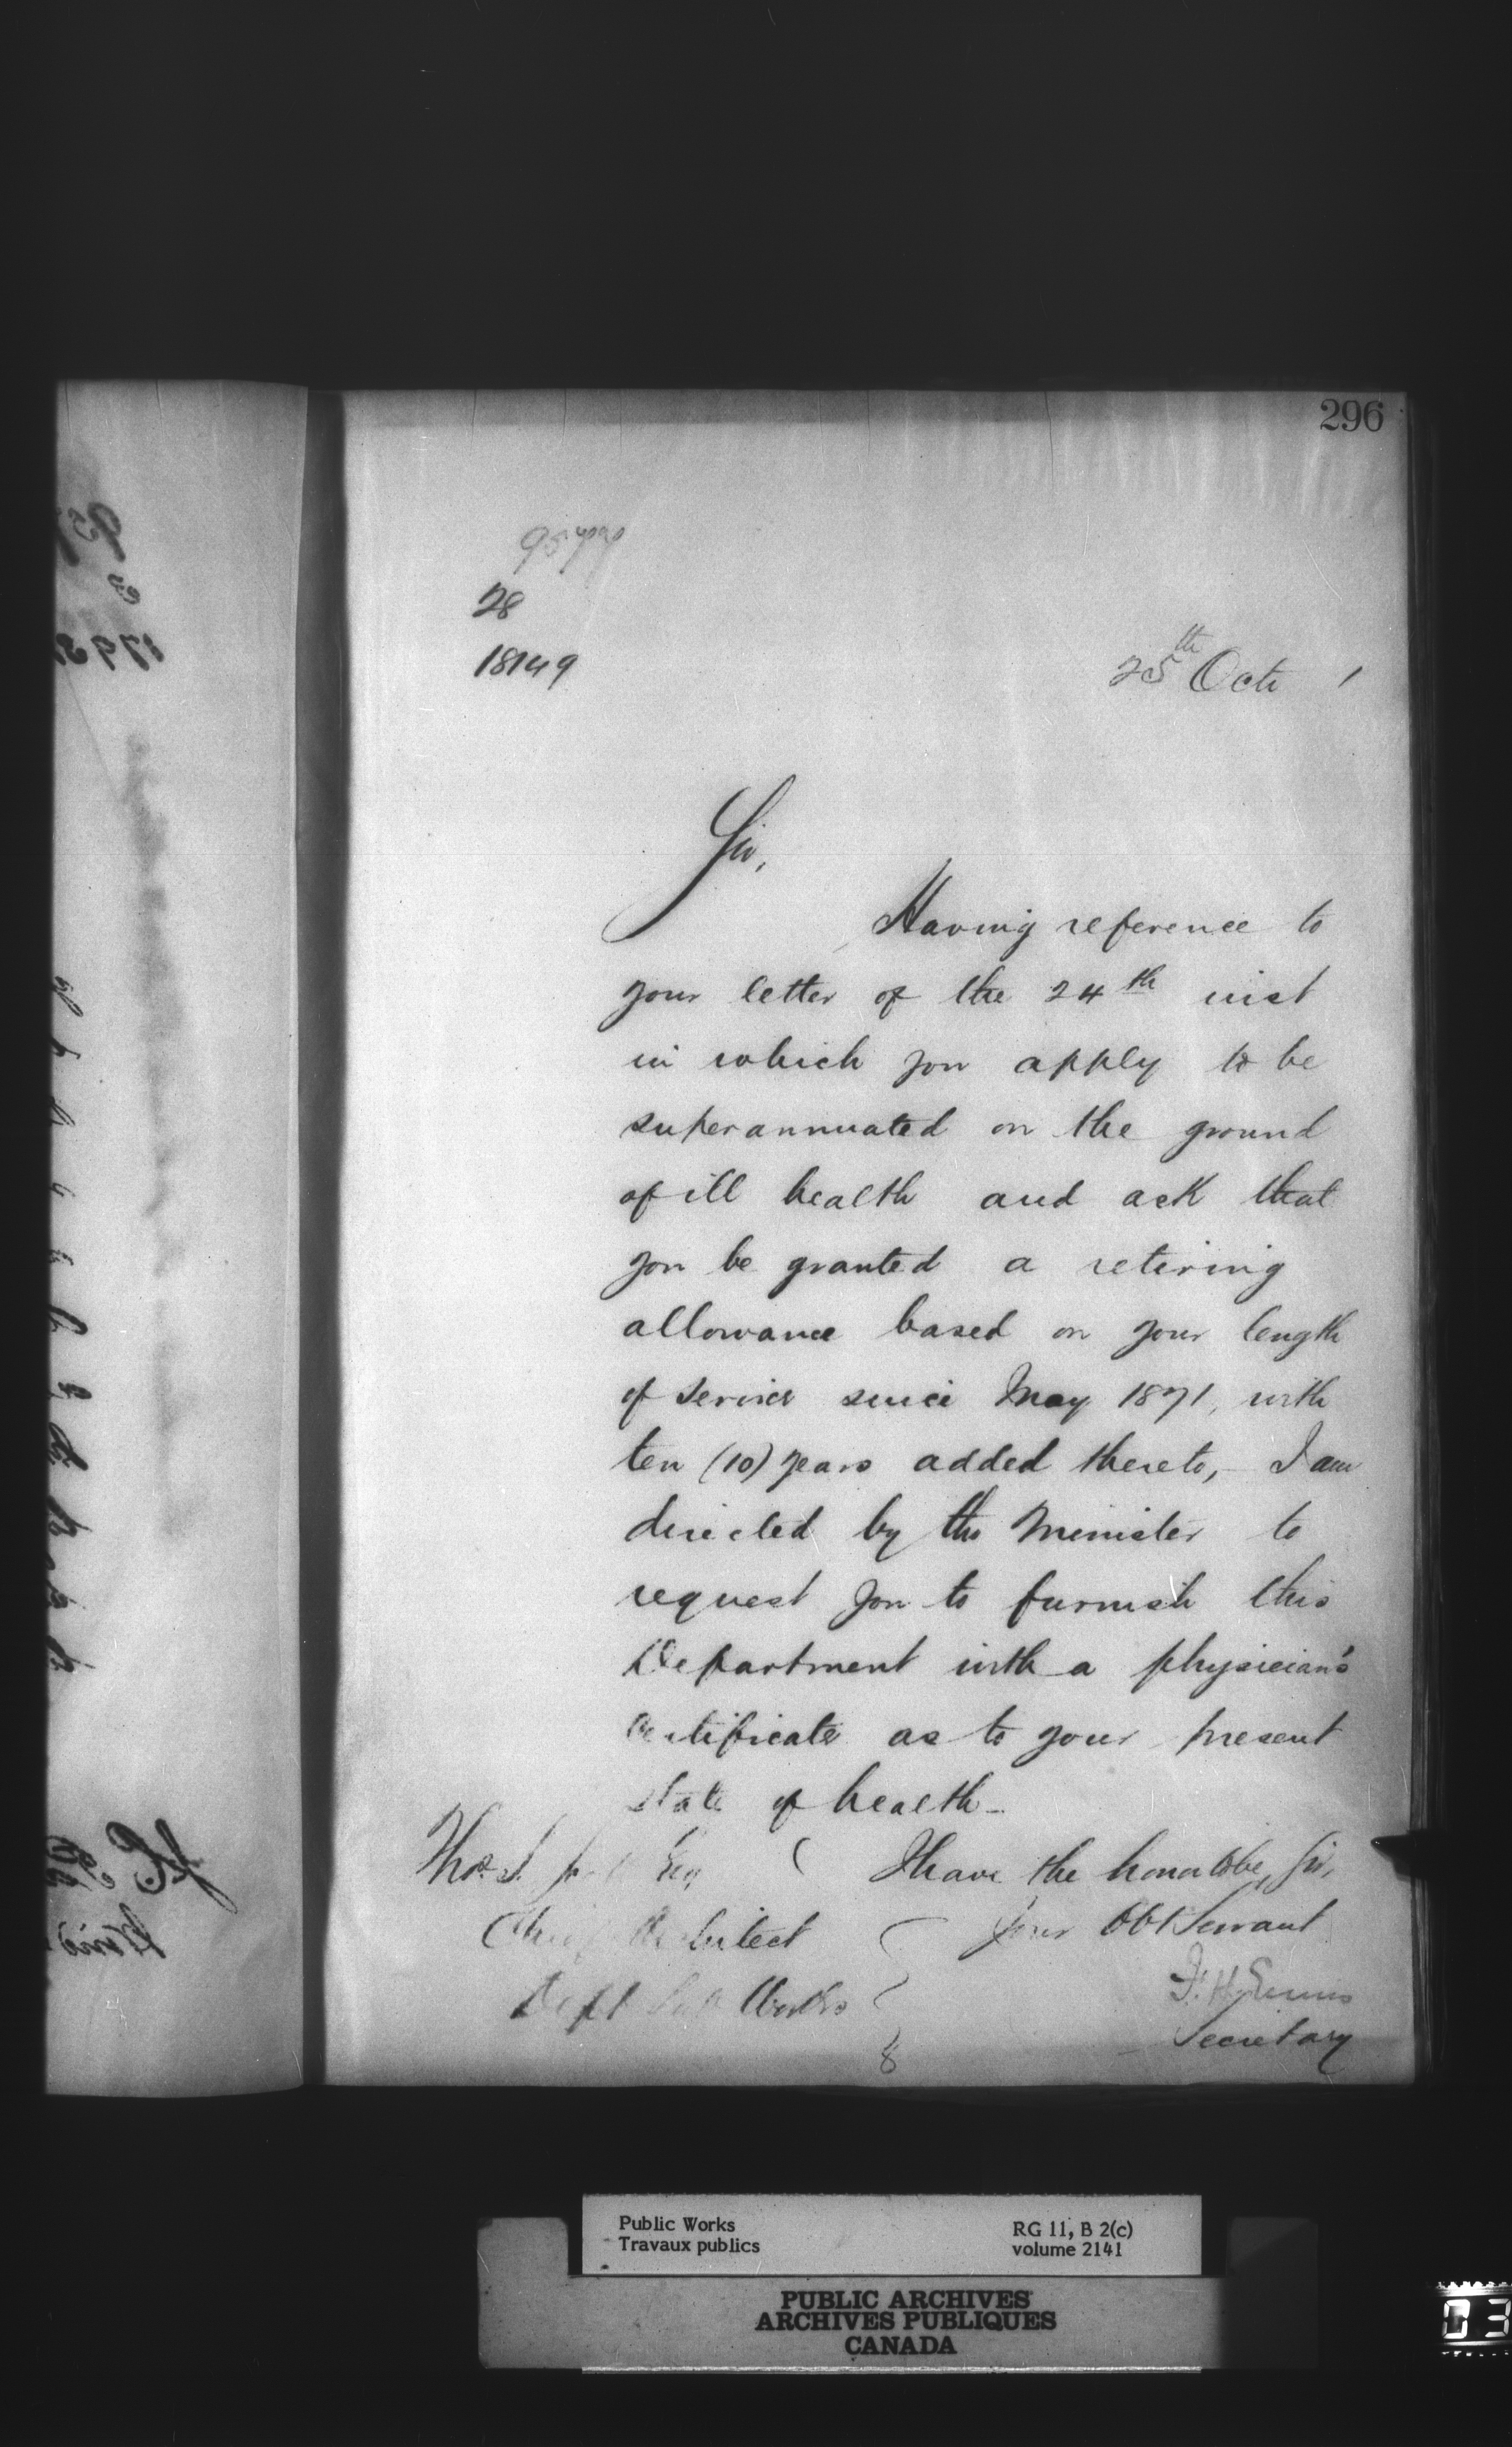 296
28
18149
25th Octr 1
Sir,
Having reference to
your letter of the 24th inst
in which you apply to be
superannuated on the ground
of ill health and ask that
you be granted a retiring
allowance based on your length
of service since May 1871, with
ten (10) years added thereto, I am
directed by the Minister to
request you to furnish this
Department with a physician's
certificate as to your present
state of health
Thos. S. Esq
I have the honor to be, Sir,
Chief Architect
Your Obt Servant
Dept Pub Works
Secretary
8
Public Works
Travaux publics
RG 11, B 2(c)
volume 2141
PUBLIC ARCHIVES
ARCHIVES PUBLIQUES
CANADA
03